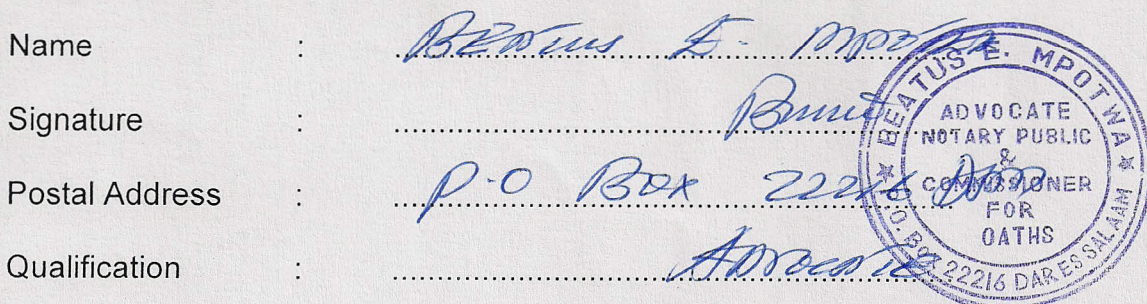 Name : Beatus E. Mpotwa
Signature :
Postal Address : P.O Box 22216 DSM
Qualification : Advocate
★ BEATUS E. MPOTWA ★
ADVOCATE
NOTARY PUBLIC
&
COMMISSIONER
FOR
OATHS
P.O. Box 22216 DAR ES SALAAM